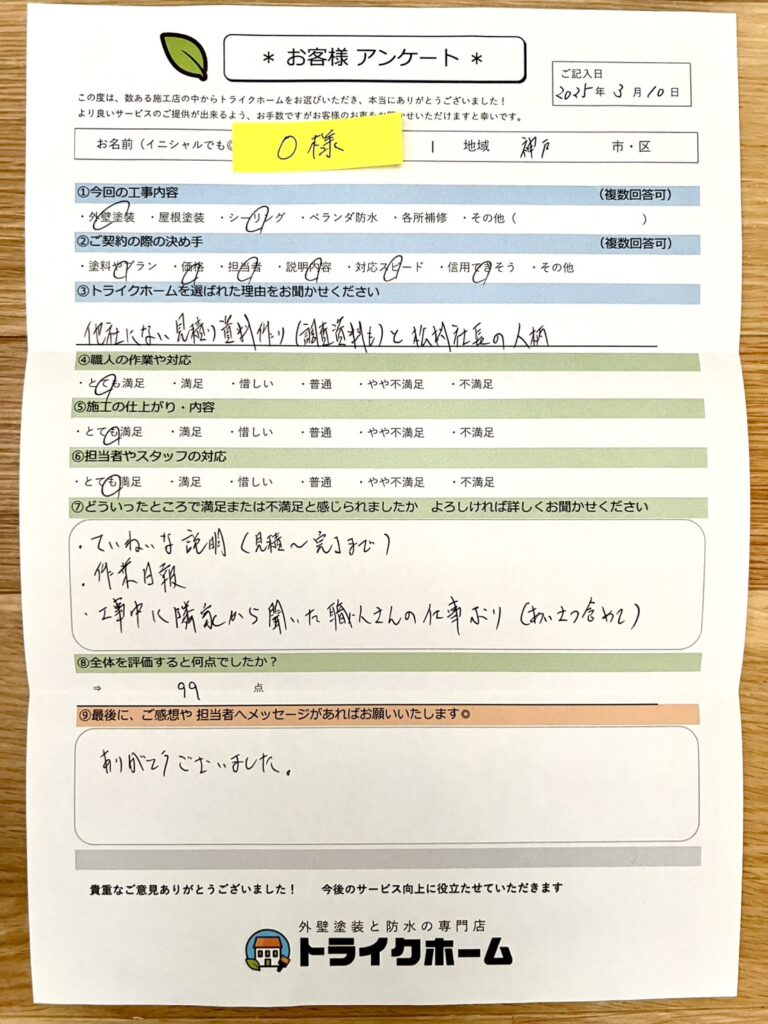 * お客様 アンケート *
ご記入日
2025年 3月10日
この度は、数ある施工店の中からトライクホームをお選びいただき、本当にありがとうございました！
より良いサービスのご提供が出来るよう、お手数ですがお客様のお声をお聞かせいただけますと幸いです。
お名前（イニシャルでも O様 地域 神戸 市・区
①今回の工事内容 （複数回答可）
・外壁塗装 ・屋根塗装 ・シーリング ・ベランダ防水 ・各所補修 ・その他（ ）
②ご契約の際の決め手 （複数回答可）
・塗料やプラン ・価格 ・担当者 ・説明内容 ・対応スピード ・信用できそう ・その他
③トライクホームを選ばれた理由をお聞かせください
他社にない見積り資料作り（調査資料も）と松村社長の人柄
④職人の作業や対応
・とても満足 ・満足 ・惜しい ・普通 ・やや不満足 ・不満足
⑤施工の仕上がり・内容
・とても満足 ・満足 ・惜しい ・普通 ・やや不満足 ・不満足
⑥担当者やスタッフの対応
・とても満足 ・満足 ・惜しい ・普通 ・やや不満足 ・不満足
⑦どういったところで満足または不満足と感じられましたか よろしければ詳しくお聞かせください
・ていねいな説明（見積～完了まで）
・作業日報
・工事中に隣家から聞いた職人さんの仕事ぶり（あいさつ含めて）
⑧全体を評価すると何点でしたか？
⇒ 99 点
⑨最後に、ご感想や 担当者へメッセージがあればお願いいたします◎
ありがとうございました。
貴重なご意見ありがとうございました！ 今後のサービス向上に役立たせていただきます
外壁塗装と防水の専門店
トライクホーム